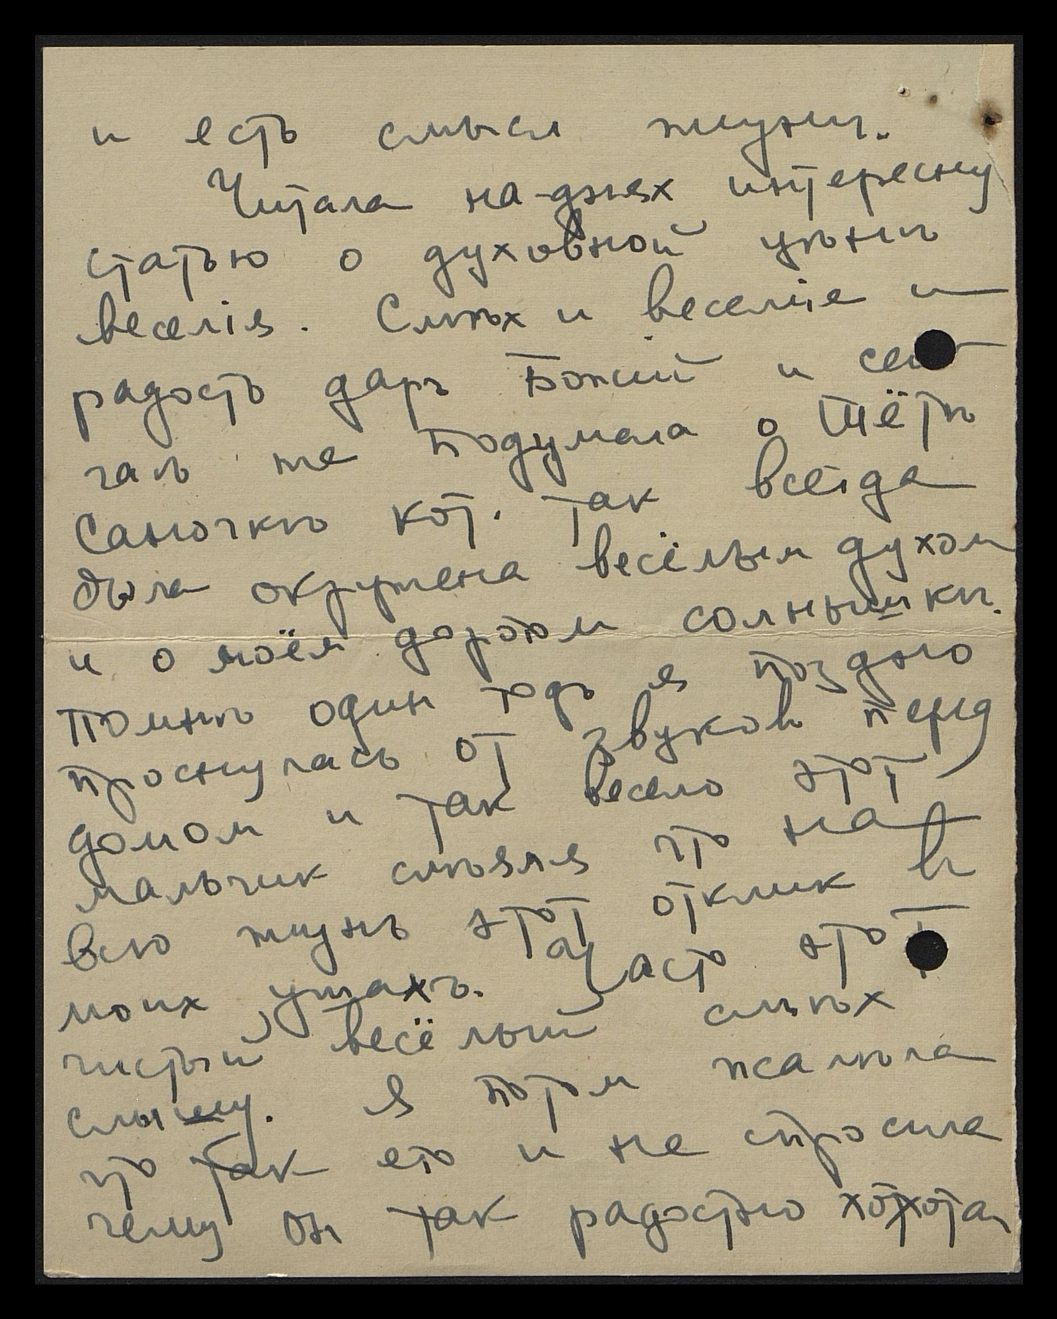 и есть смысл жизни.
Читала на-днях интересну
статью о духовной цѣнѣ
веселія. Смѣх и веселіе и
радость даръ Божій и сей
часъ же подумала о тётѣ
Саночкѣ кот. так всегда
была окружена весёлым духом
и о моём дорогом солнышкѣ.
Помню один годъ я поздно
проснулась от звуков перед
домом и так весело этот
мальчик смѣялся что на
всю жизнь этот отклик в
моих ушахъ. Часто этот
чистый весёлый смѣх
слышу. Я потом жалѣла
что так его и не спросила
чему он так радостно хохотал